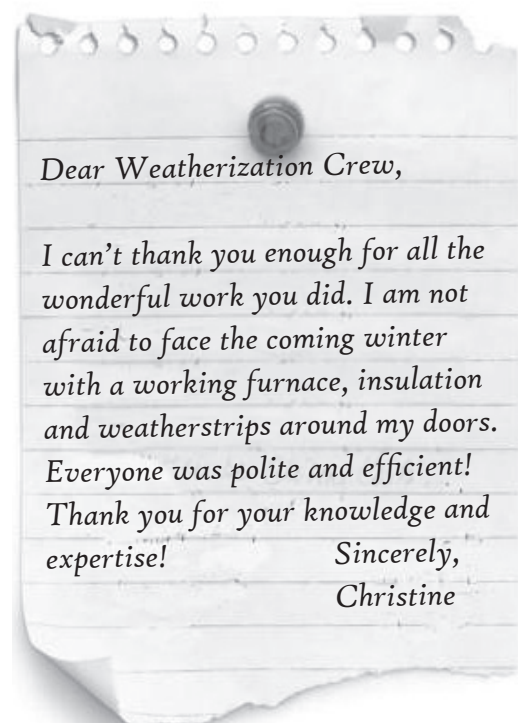 Dear Weatherization Crew,
I can't thank you enough for all the
wonderful work you did. I am not
afraid to face the coming winter
with a working furnace, insulation
and weatherstrips around my doors.
Everyone was polite and efficient!
Thank you for your knowledge and
expertise! Sincerely,
Christine